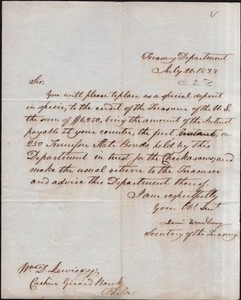 Treasury Department
July 20. 1838
Sir.
You will please to place as a special deposit
in specie, to the credit of the Treasurer of the U.S.
the sum of $6,250, being the amount of the interest
payable at your counter, the first on
250 Tennessee State Bonds held by this
Department in trust for the Chickasaws, and
make the usual return to the Treasurer
and advise the Department thereof.
I am respectfully
Your Obt Servt
Levi Woodbury
Secretary of the Treasury
Wm D. Lewis Esqr
Cashier Girard Bank
Phila